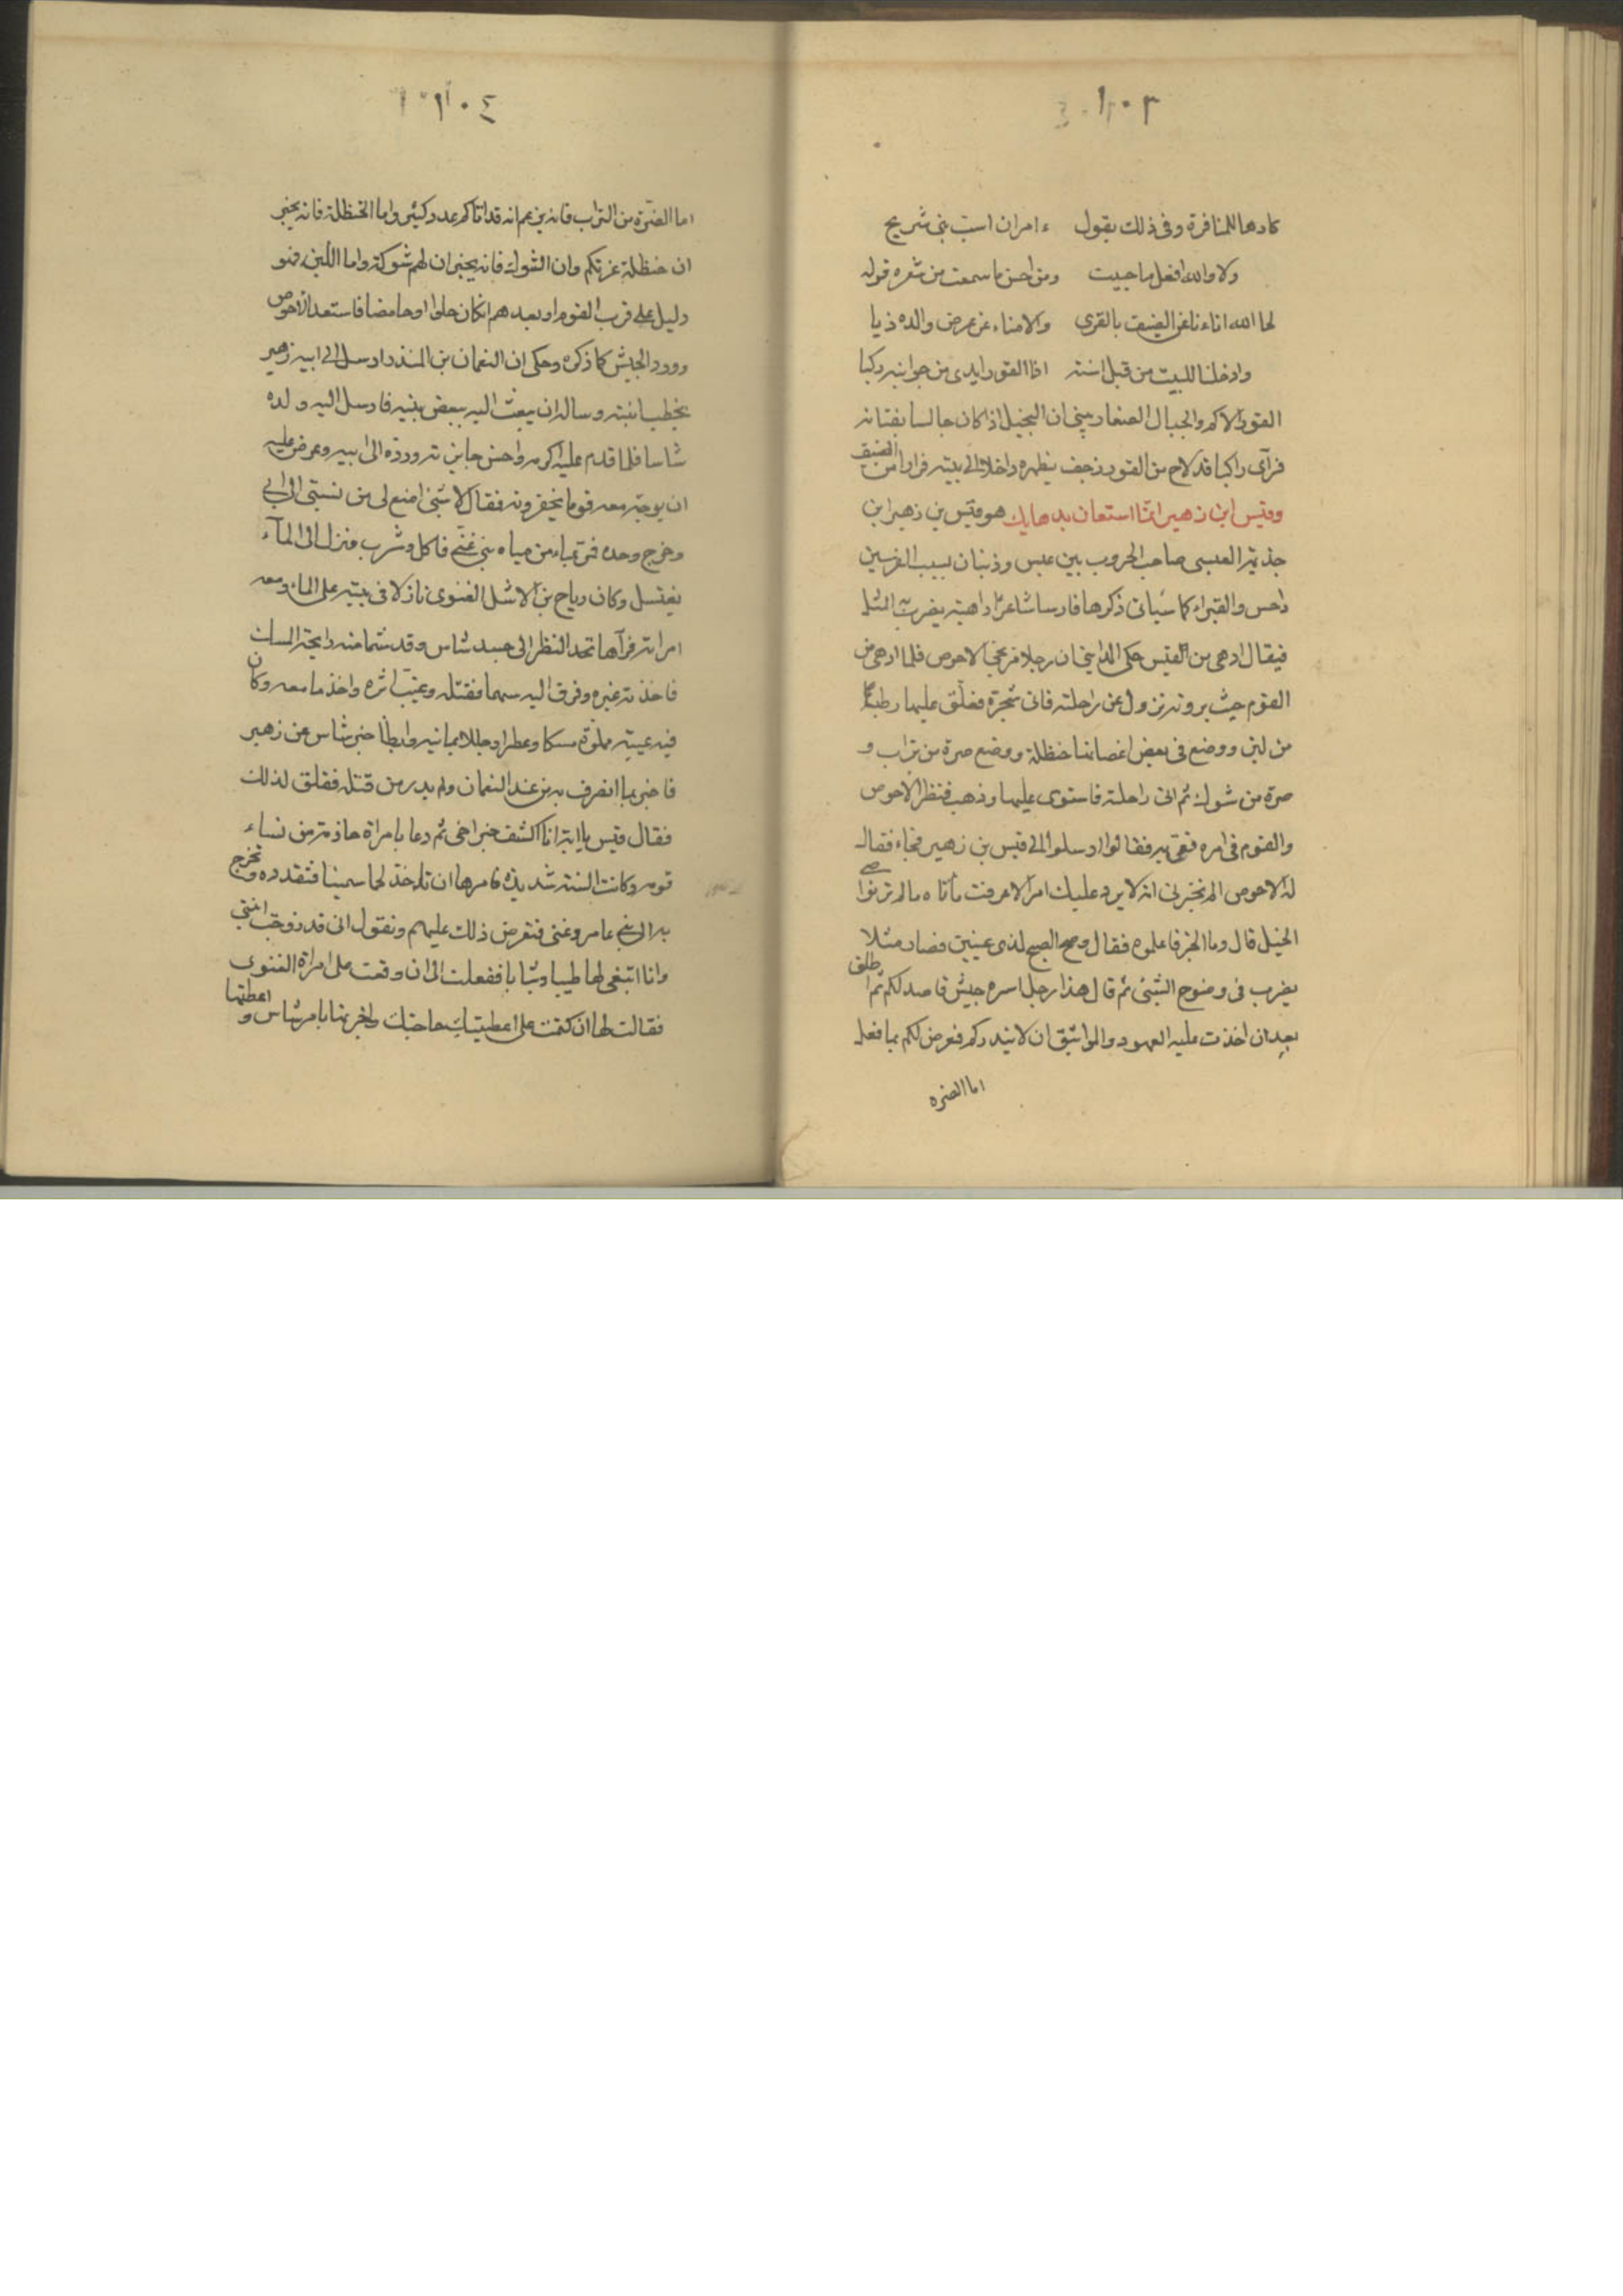 ١٠٣
كادها للمنافرة وفي ذلك يقول ءامران است بني شريح
ولا والله افعل ما حييت ومن احسن ما سمعت من شعره قوله
لحا الله اناءنا عن الضيف بالقرى والامناء عن عرض والده ذبا
وادخلنا للبيت من قبل استه اذا القور ابدى من جوانبه ركبا
القور الاكم والجبال الصغار يعني ان البخيل اذا كان جالسا بفنائه
فرآى راكبا قد لاح من القور زحف بظهره داخلا الى بيته فرارا من الضيف
وقيس ابن زهير انما استعان بدهايك هو قيس بن زهير ابن
جذيمة العبسي صاحب الحروب بين عبس وذبيان بسبب الفرسين
داحس والغبراء كما سياتى ذكرها فارسا شاعرا داهية يضرب به المثل
فيقال ادهى من قيس حكى المدايني ان رجلا مر بحي الاحوص فلما ادهى من
القوم حيث يرونه نزول عن راحلته فاتى شجرة فعلق عليها وطبا
من لبن ووضع في بعض اغصانها حنظلة ووضع صرة من تراب و
صرة من شوك ثم اتى راحلته فاستوى عليها وذهب فنظر الاحوص
والقوم في امره فعي به فقالوا ارسلوا الى قيس بن زهير فجاء فقال
له الاحوص الم تخبرني انه لا يرد عليك امر الا عرفت مأتاه ما لم تر نواصى
الخيل قال وما الخبر فاعلموه فقال وضح الصبح لذى عينين فصار مثلا
يضرب في وضوح الشئ ثم قال هذا رجل اسره جيش قاصد لكم ثم اطلق
بعد ان اخذت عليه العهود والمواثيق ان لا ينذركم فعرض لكم بما فعل
اما الصره
١٠٤
اما الصرة من التراب فانه يزعم انه قد اتاكم عدد كثير واما الحنظلة فانه يخبر
ان حنظلة غزتكم وان الشوك فانه يخبر ان لهم شوكة واما اللبن فهو
دليل على قرب القوم او بعدهم ان كان حلوا او حامضا فاستعد الاحوص
وورد الجيش كما ذكر وحكى ان النعمان بن المنذر ارسل الى ابيه زهير
يخطب ابنته وساله ان يبعث اليه ببعض بنيه فارسل اليه ولده
شاسا فلما قدم عليه اكرمه واحسن جايزته ورده الى ابيه وعرض عليه
ان يوجه معه قوما يخفرونه فقال لا شئ امنع لى من نسبتى الى ابي
وخرج وحده فمر بماء من مياه بني غنم فاكل وشرب فنزل الى المآء
يغتسل وكان رياح بن الاشل الغنوى نازلا في بيته على الماء ومعه
امراته فرآها تحد النظر الى جسد شاس وقد شما منه رايحة المسك
فاخذته غيره وفوق اليه سهما فقتله وغيب اثره واخذ ما معه وكان
فيه عيبة مملوة مسكا وعطرا وحللا يمانيه وابطأ خبر شاس عن زهير
فاخبر بما انصرف به من عند النعمان ولم يدر من قتله فقلق لذلك
فقال قيس يا ابه انا اكشف خبر اخى ثم دعا بامراة حازمة من نساء
قومه وكانت السنة شديدة فامرها ان تاخذ لحما سمينا فتقدده وتخرج
به الى بني عامر وغنى فتعرض ذلك عليهم وتقول انى قد زوجت ابنتي
وانا ابتغى لها طيبا وثيابا ففعلت الى ان وقعت على امراة الغنوى
فقالت لها ان كتمت على اعطيتك حاجتك واخبرتها بامر شاس و اعطتها